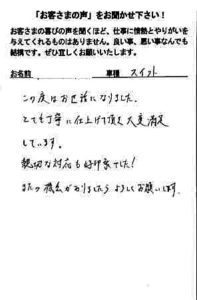 「お客さまの声」をお聞かせ下さい！
お客さまの喜びの声を聞くほど、仕事に情熱とやりがいを
与えてくれるものはありません。良い事、悪い事なんでも
結構です。ぜひ宜しくお願いいたします。
お名前 車種 スイフト
この度はお世話になりました。
とても丁寧に仕上げて頂き大変満足
しています。
親切な対応も好印象でした！
また機会がありましたらよろしくお願いします。